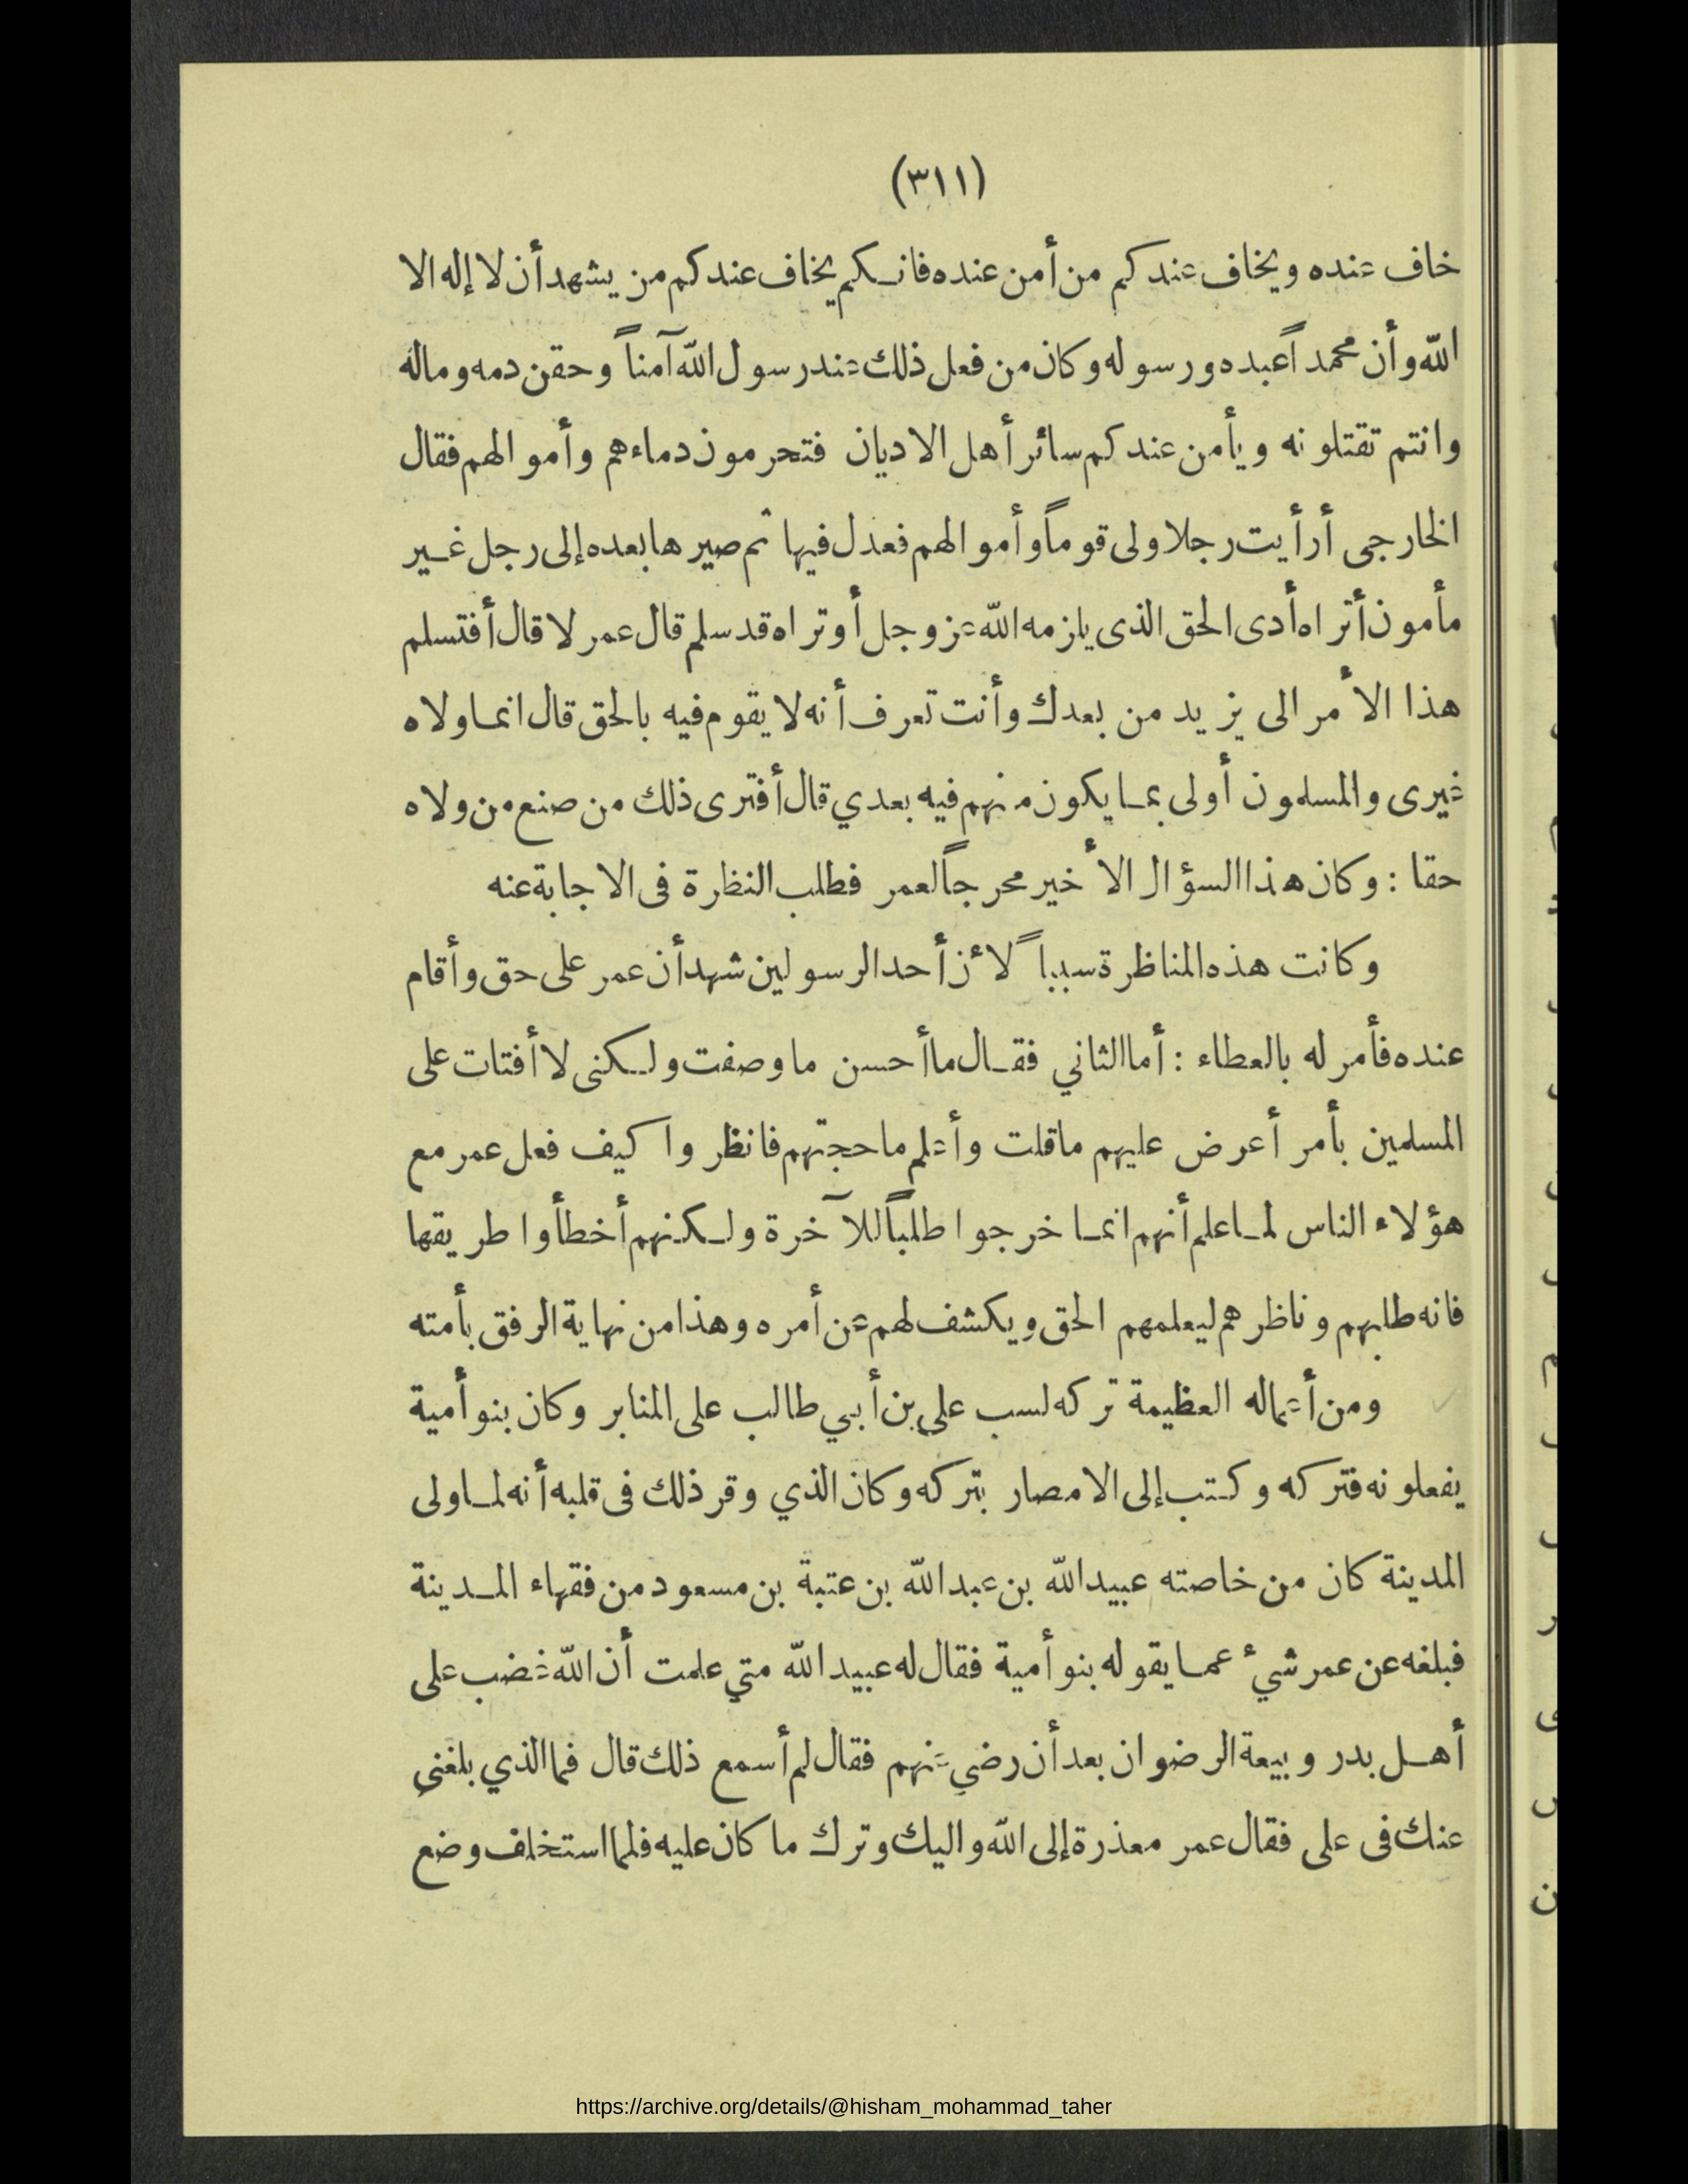 (٣١١)
خاف عنده ويخاف عندكم من أمن عنده فانكم يخاف عندكم من يشهد أن لا إله الا
الله وأن محمداً عبده ورسوله وكان من فعل ذلك عند رسول الله آمناً وحقن دمه وماله
وانتم تقتلونه ويأمن عندكم سائر أهل الاديان فتحرمون دماءهم وأموالهم فقال
الخارجى أرأيت رجلا ولى قوماً وأموالهم فعدل فيها ثم صيرها بعده إلى رجل غير
مأمون أتراه أدى الحق الذى يلزمه الله عز وجل أو تراه قد سلم قال عمر لا قال أفتسلم
هذا الأمر الى يزيد من بعدك وأنت تعرف أنه لا يقوم فيه بالحق قال انما ولاه
غيرى والمسلمون أولى بما يكون منهم فيه بعدي قال أفترى ذلك من صنع من ولاه
حقا : وكان هذا السؤال الأخير محرجاً لعمر فطلب النظرة فى الاجابة عنه
وكانت هذه المناظرة سبباً لأن أحد الرسولين شهد أن عمر على حق وأقام
عنده فأمر له بالعطاء : أما الثاني فقال ما أحسن ما وصفت ولكنى لا أفتات على
المسلمين بأمر أعرض عليهم ما قلت وأعلم ما حجتهم فانظروا كيف فعل عمر مع
هؤلاء الناس لما علم أنهم انما خرجوا طلباً للآخرة ولكنهم أخطأوا طريقها
فانه طلبهم وناظرهم ليعلمهم الحق ويكشف لهم عن أمره وهذا من نهاية الرفق بأمته
ومن أعماله العظيمة تركه لسب علي بن أبي طالب على المنابر وكان بنو أمية
يفعلونه فتركه وكتب إلى الامصار بتركه وكان الذي وقر ذلك فى قلبه أنه لما ولى
المدينة كان من خاصته عبيد الله بن عبد الله بن عتبة بن مسعود من فقهاء المدينة
فبلغه عن عمر شيء عما يقوله بنو أمية فقال له عبيد الله متي علمت أن الله غضب على
أهل بدر وبيعة الرضوان بعد أن رضي عنهم فقال لم أسمع ذلك قال فما الذي بلغني
عنك فى على فقال عمر معذرة إلى الله واليك وترك ما كان عليه فلما استخلف وضع
https://archive.org/details/@hisham_mohammad_taher